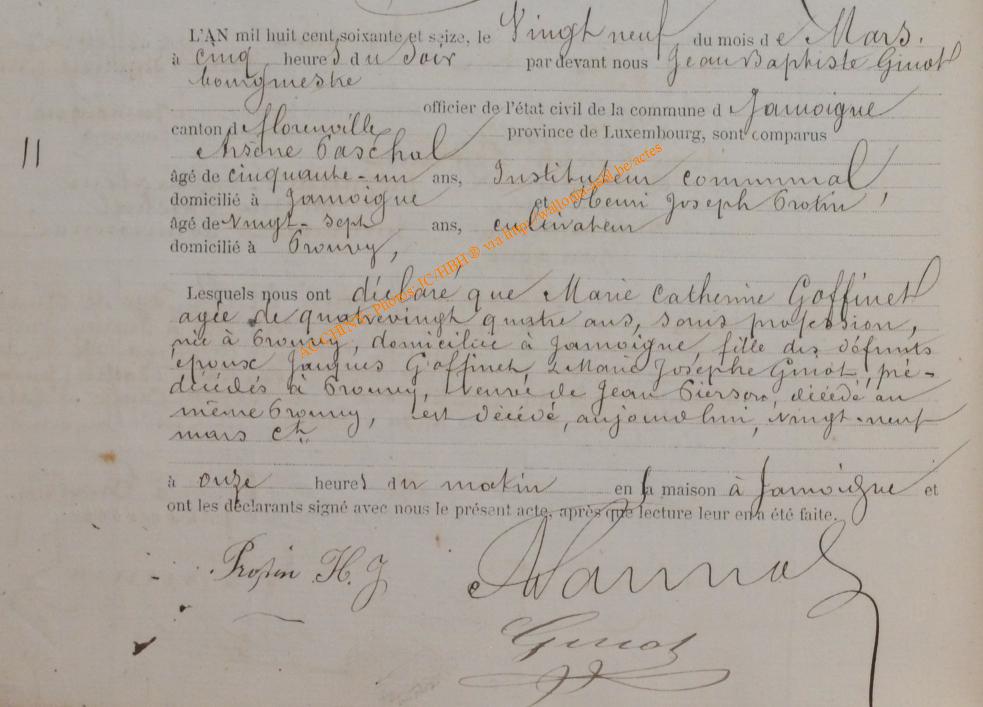 L'AN mil huit cent soixante et seize, le Vingt neuf du mois d e Mars.
à cinq heures du soir par devant nous Jean Baptiste Ginot
bourgmestre
officier de l'état civil de la commune d e Jamoigne
canton de florenville province de Luxembourg, sont comparus
11
Arsène Paschal
âgé de cinquante-un ans, Instituteur communal
domicilié à Jamoigne et Henri Joseph
âgé de vingt-sept ans, cultivateur
domicilié à Prouvy,
Lesquels nous ont déclaré que Marie Catherine Goffinet
agée de quatrevingt quatre ans, sans profession,
née à Prouvy, domiciliée à Jamoigne, fille des défunts
époux Jacques Goffinet, & Marie Josephe Ginot, pré-
décédés à Prouvy, Veuve de Jean Pierson, décédé au
même Prouvy, est décédé, aujourd'hui, vingt-neuf
mars ct.
à onze heures du matin en la maison à Jamoigne et
ont les déclarants signé avec nous le présent acte, après que lecture leur en a été faite.
H. J
Ginot
ACCHENE, Photos: JC/HBH ® via http://wallonia.asbl.be/actes